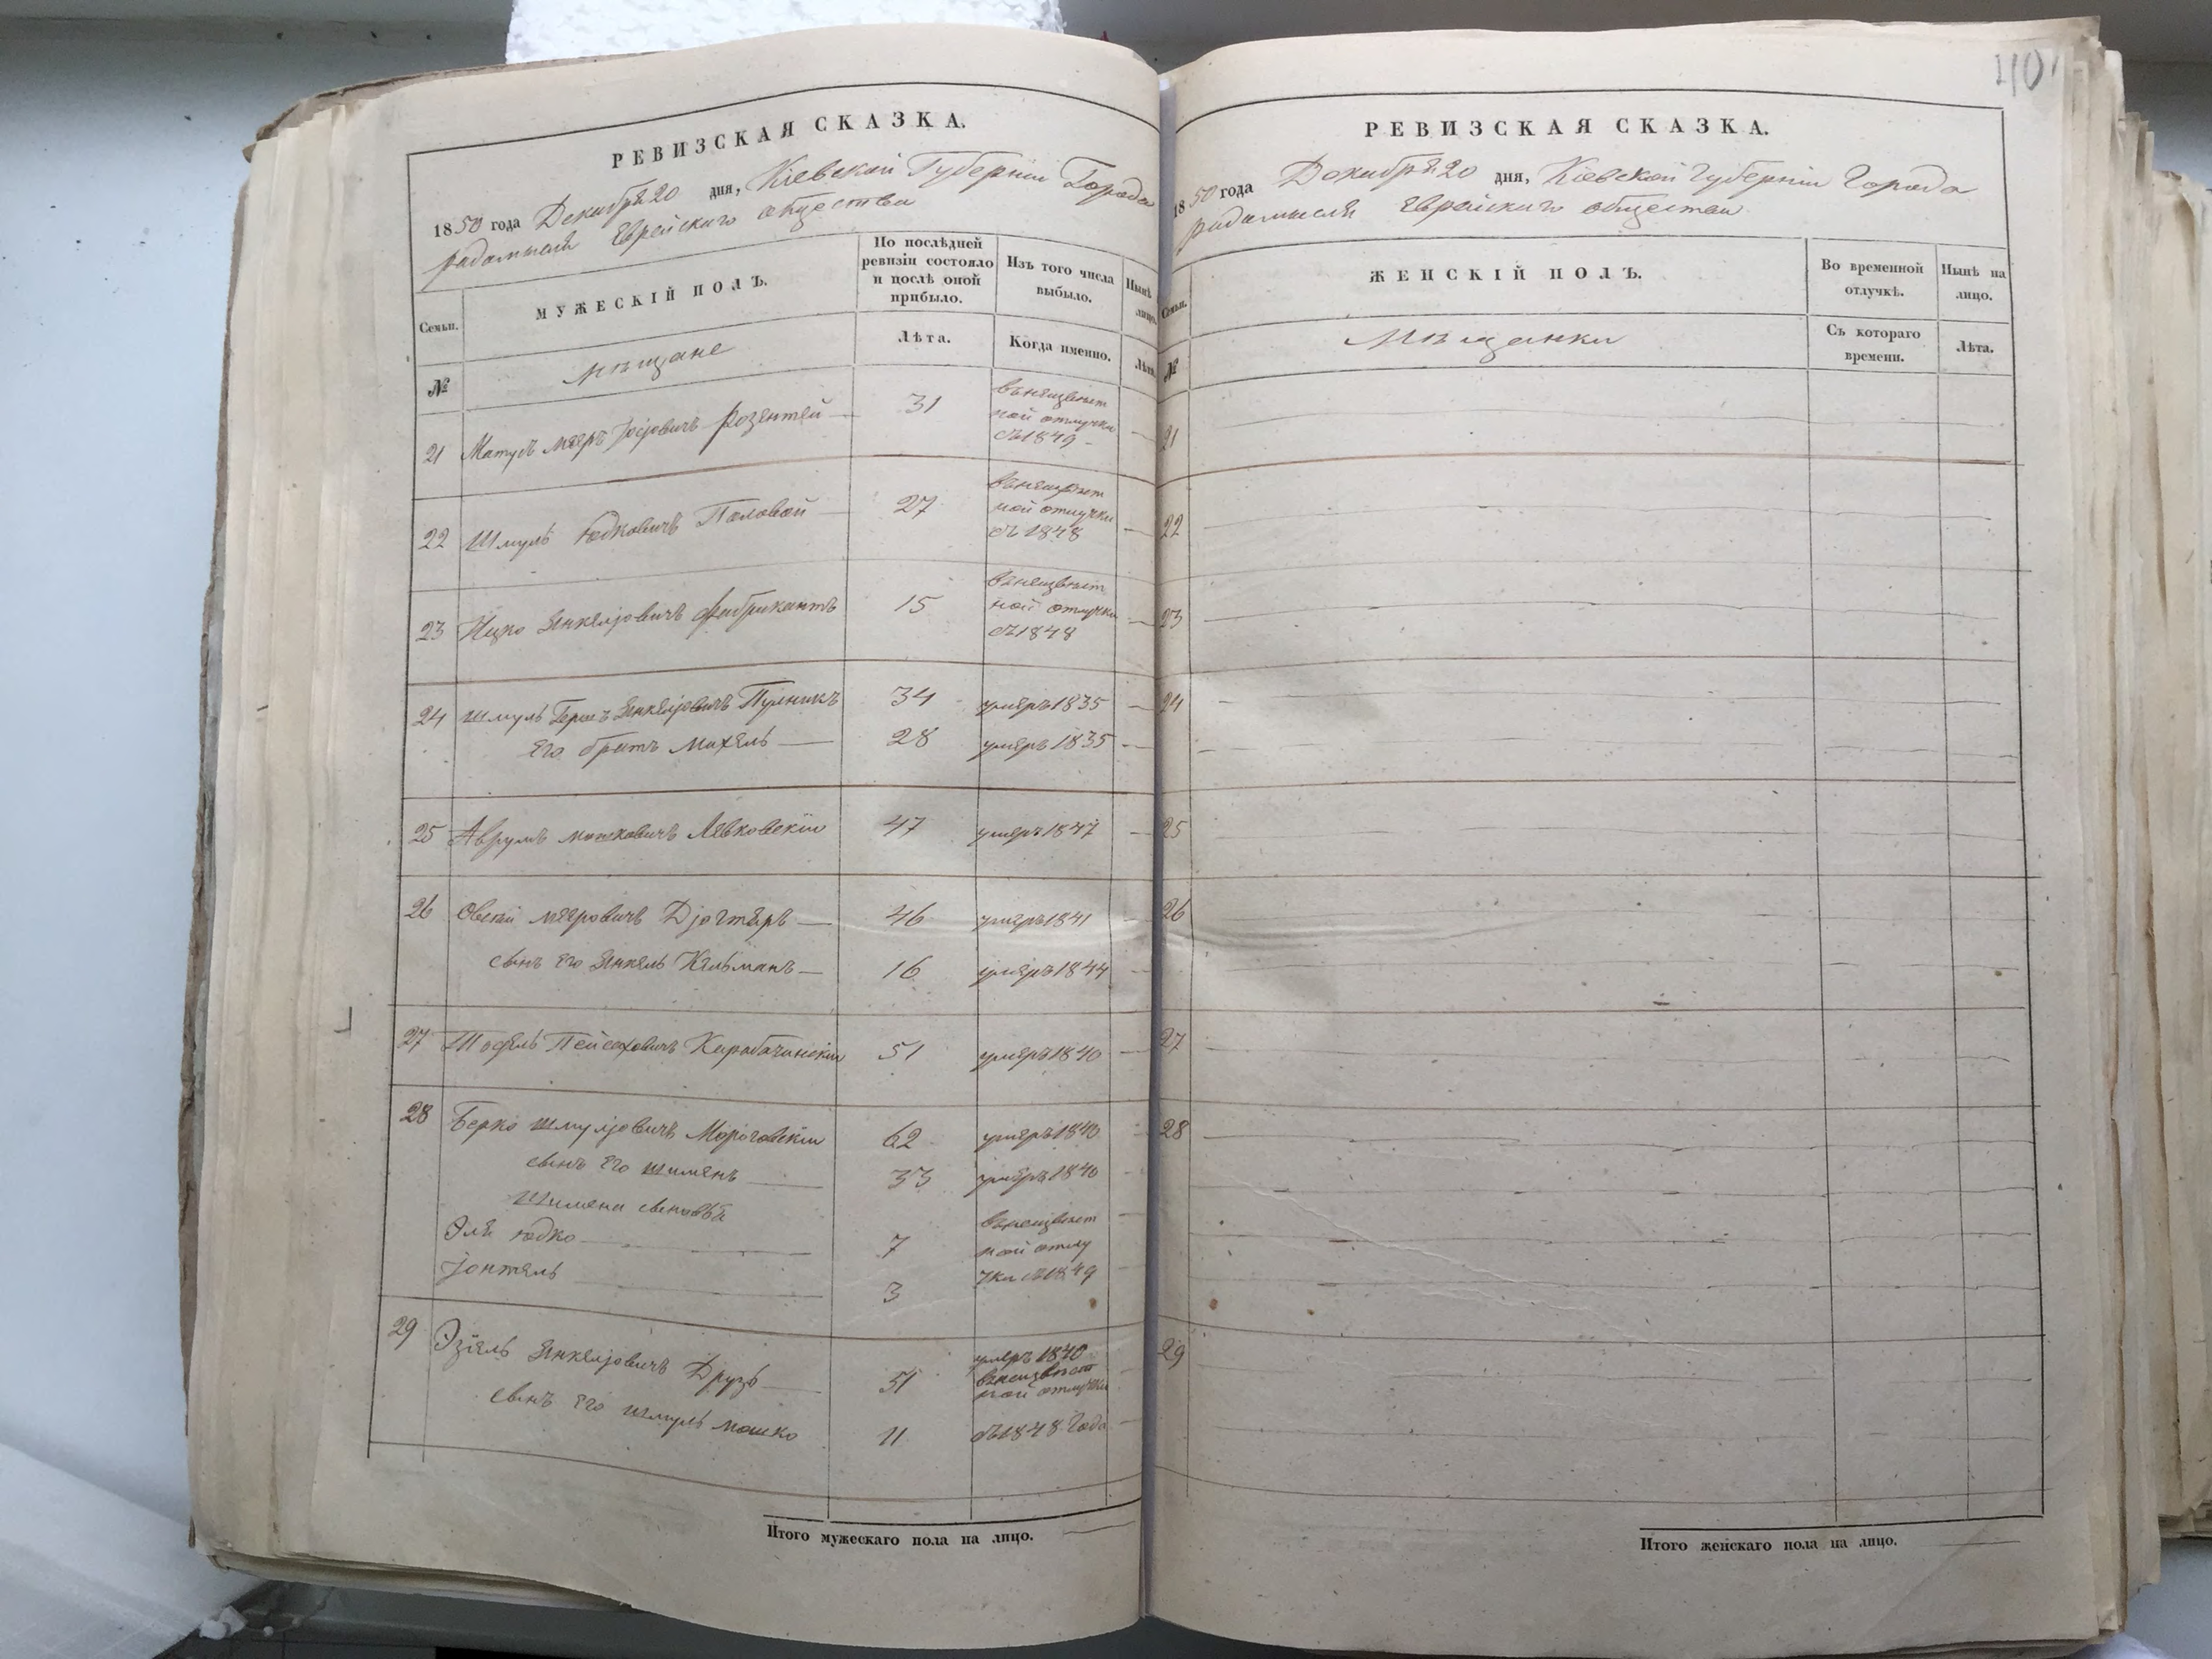 РЕВИЗСКАЯ СКАЗКА.
1850 года Декабря 20 дня, Кіевской Губерніи Города
Радомысля Еврейскаго общества
Семьи.
МУЖЕСКІЙ ПОЛЪ.
По послѣдней ревизіи состояло и послѣ оной прибыло.
Изъ того числа выбыло.
Нынѣ лицо.
№
Мѣщане
Лѣта.
Когда именно.
Лѣта
21 Матусъ Мееръ Іосіовичъ Розентей 31 въ неизвѣст
ной отлучки
съ 1849
22 Шмуль Юдковичъ Половой 27 въ неизвѣст
ной отлучки
съ 1848
23 Ицко Янкеліовичъ Фабрикантъ 15 въ неизвѣст
ной отлучки
съ 1848
24 Шмуль Гершъ Янкеліовичъ 34 умеръ 1835
Его братъ Михель 28 умеръ 1835
25 Аврумъ Мошковичъ Левковскіи 47 умеръ 1847
26 Овсѣй Мееровичъ 46 умеръ 1841
сынъ его Янкель Кельманъ 16 умеръ 1844
27 Пейсаховичъ Карабачинскіи 51 умеръ 1840
28 Берко Шмуліовичъ Мороговскіи 62 умеръ 1840
сынъ его Шименъ 33 умеръ 1840
Шимена сыновья
Эля Юдко 7 въ неизвѣст
ной отлу
Іонтель 3 чки съ 1849
29 Эзіель Янкеліовичъ Друзь 51 умеръ 1840
въ неизвѣст
ной отлучки
сынъ его Шмуль Мошко 11 съ 1848 года
Итого мужескаго пола на лицо.
110
РЕВИЗСКАЯ СКАЗКА.
1850 года Декабря 20 дня, Кіевской Губерніи Города
Радомысля Еврейскаго общества
Семьи.
ЖЕНСКІЙ ПОЛЪ.
Во временной отлучкѣ.
Нынѣ на лицо.
№
Мѣщанки
Съ котораго времени.
Лѣта.
21
22
23
24
25
26
27
28
29
Итого женскаго пола на лицо.